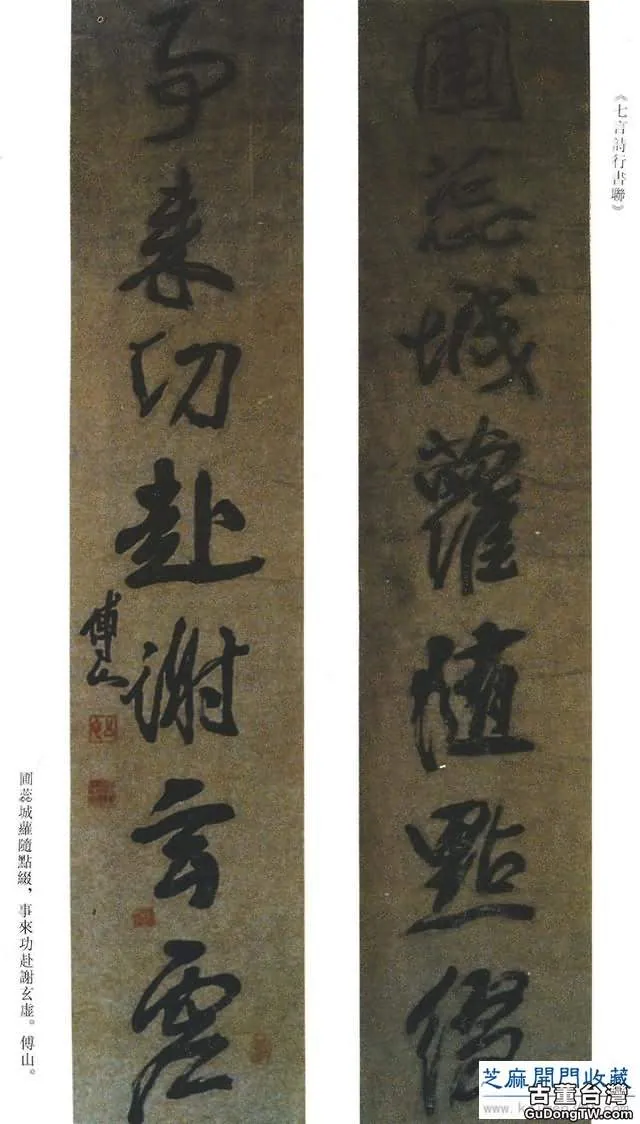 《七言詩行書聯》
圃蕊城蘿隨點綴
事來功赴謝玄虛
傅山
圃蕊城蘿隨點綴，事來功赴謝玄虛。傅山。
芝麻開門收藏
www.k
古董台灣
GuDongTW.com